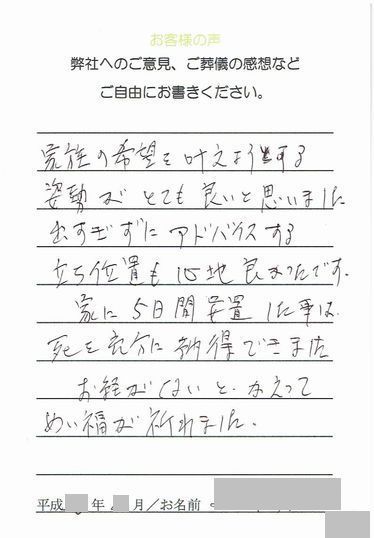 お客様の声
弊社へのご意見、ご葬儀の感想など
ご自由にお書きください。
家族の希望を叶えようとする
姿勢がとても良いと思いました
出すぎずにアドバイスする
立ち位置も心地良かったです。
家に5日間安置した事は
死を充分に納得できました
お経がないと、かえって
めい福が祈れました。
平成 年 月/お名前